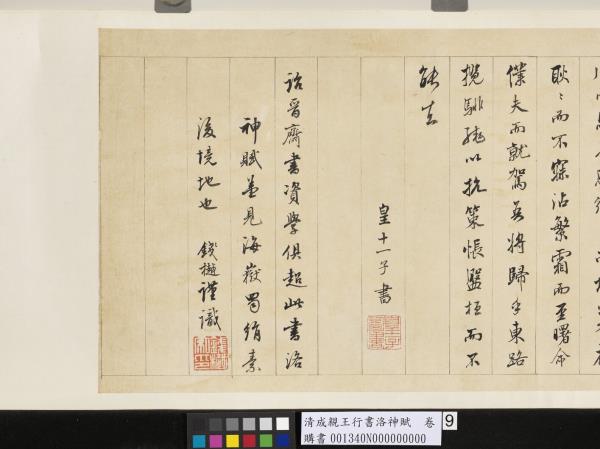 耿耿而不寐沾繁霜而至曙命
僕夫而就駕吾將歸乎東路
攬騑轡以抗策悵盤桓而不
能去
皇十一子書
詒晉齋書資學俱超此書洛
神賦並見海嶽蜀絹素
後境地也 錢樾謹識
清成親王行書洛神賦 卷 9
購書 001340N000000000